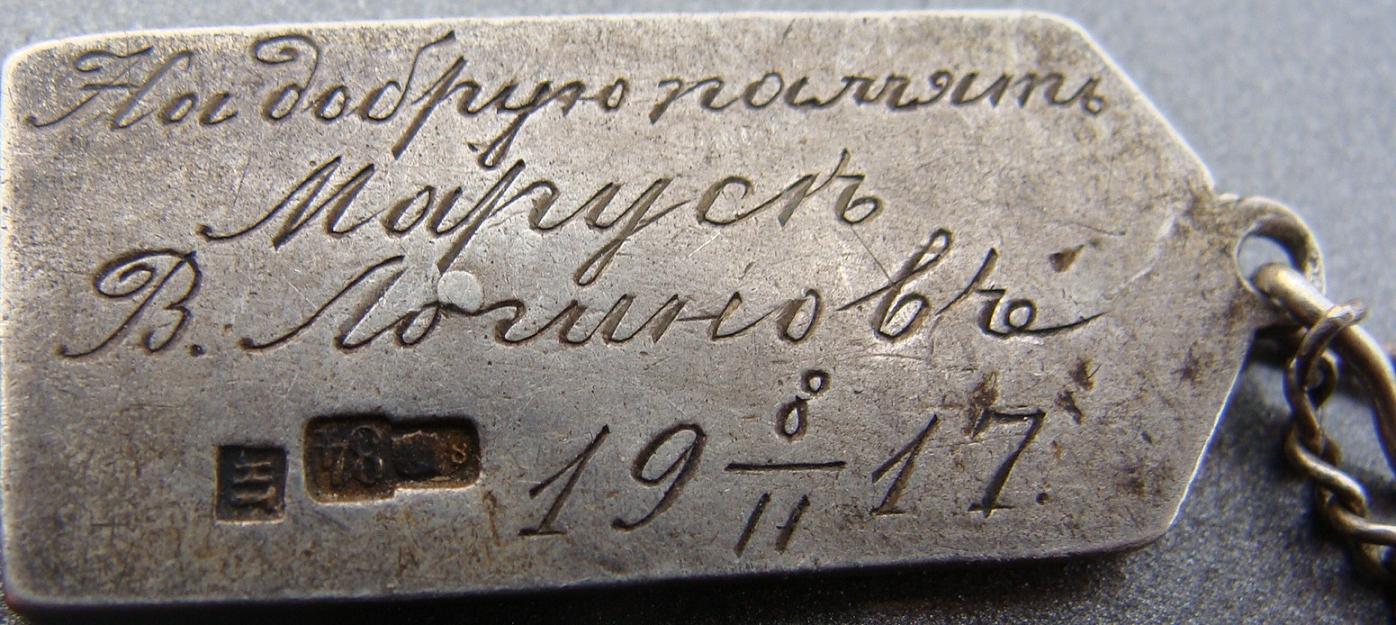 На добрую память
Марусѣ
В. Логиновѣ
19 8/II 17.